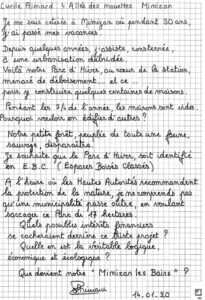 Lucile Primard 4 Allée des mouettes Mimizan
Je me suis retirée à Mimizan où pendant 30 ans,
j'ai passé mes vacances.
Depuis quelques années, j'assiste, consternée,
à une urbanisation débridée.
Voilà notre Parc d'Hiver, au cœur de la station,
menacé de déboisement... et ce...
pour y construire quelques centaines de maisons.
Pendant les 3/4 de l'année, les maisons sont vides.
Pourquoi vouloir en édifier d'autres ?
Notre petite forêt, peuplée de toute une faune,
sauvage, disparaîtra.
Je souhaite que le Parc d'Hiver, soit identifié
en E.B.C. (Espaces Boisés Classés)
A l'heure où les Hautes Autorités recommandent
la protection de la nature, je ne comprends pas
qu'une municipalité passe outre, en voulant
saccager ce Parc de 17 hectares.
Quels possibles intérêts financiers
se cacheraient derrière ce triste projet ?
Quelle en est la véritable logique,
économique et écologique ?
Que devient notre "Mimizan les Bains" ?
14.01.20